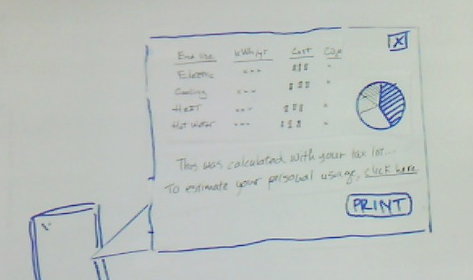 X
End Use kWh/yr Cost CO2e
Electric --- $$$ "
Cooling --- $$$ "
Heat --- $$$ "
Hot Water --- $$$ "
This was calculated with your tax lot...
To estimate your personal usage, click here
PRINT